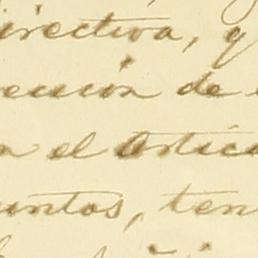 irectiva, y
ecución de
n el Artícu
untos, ten